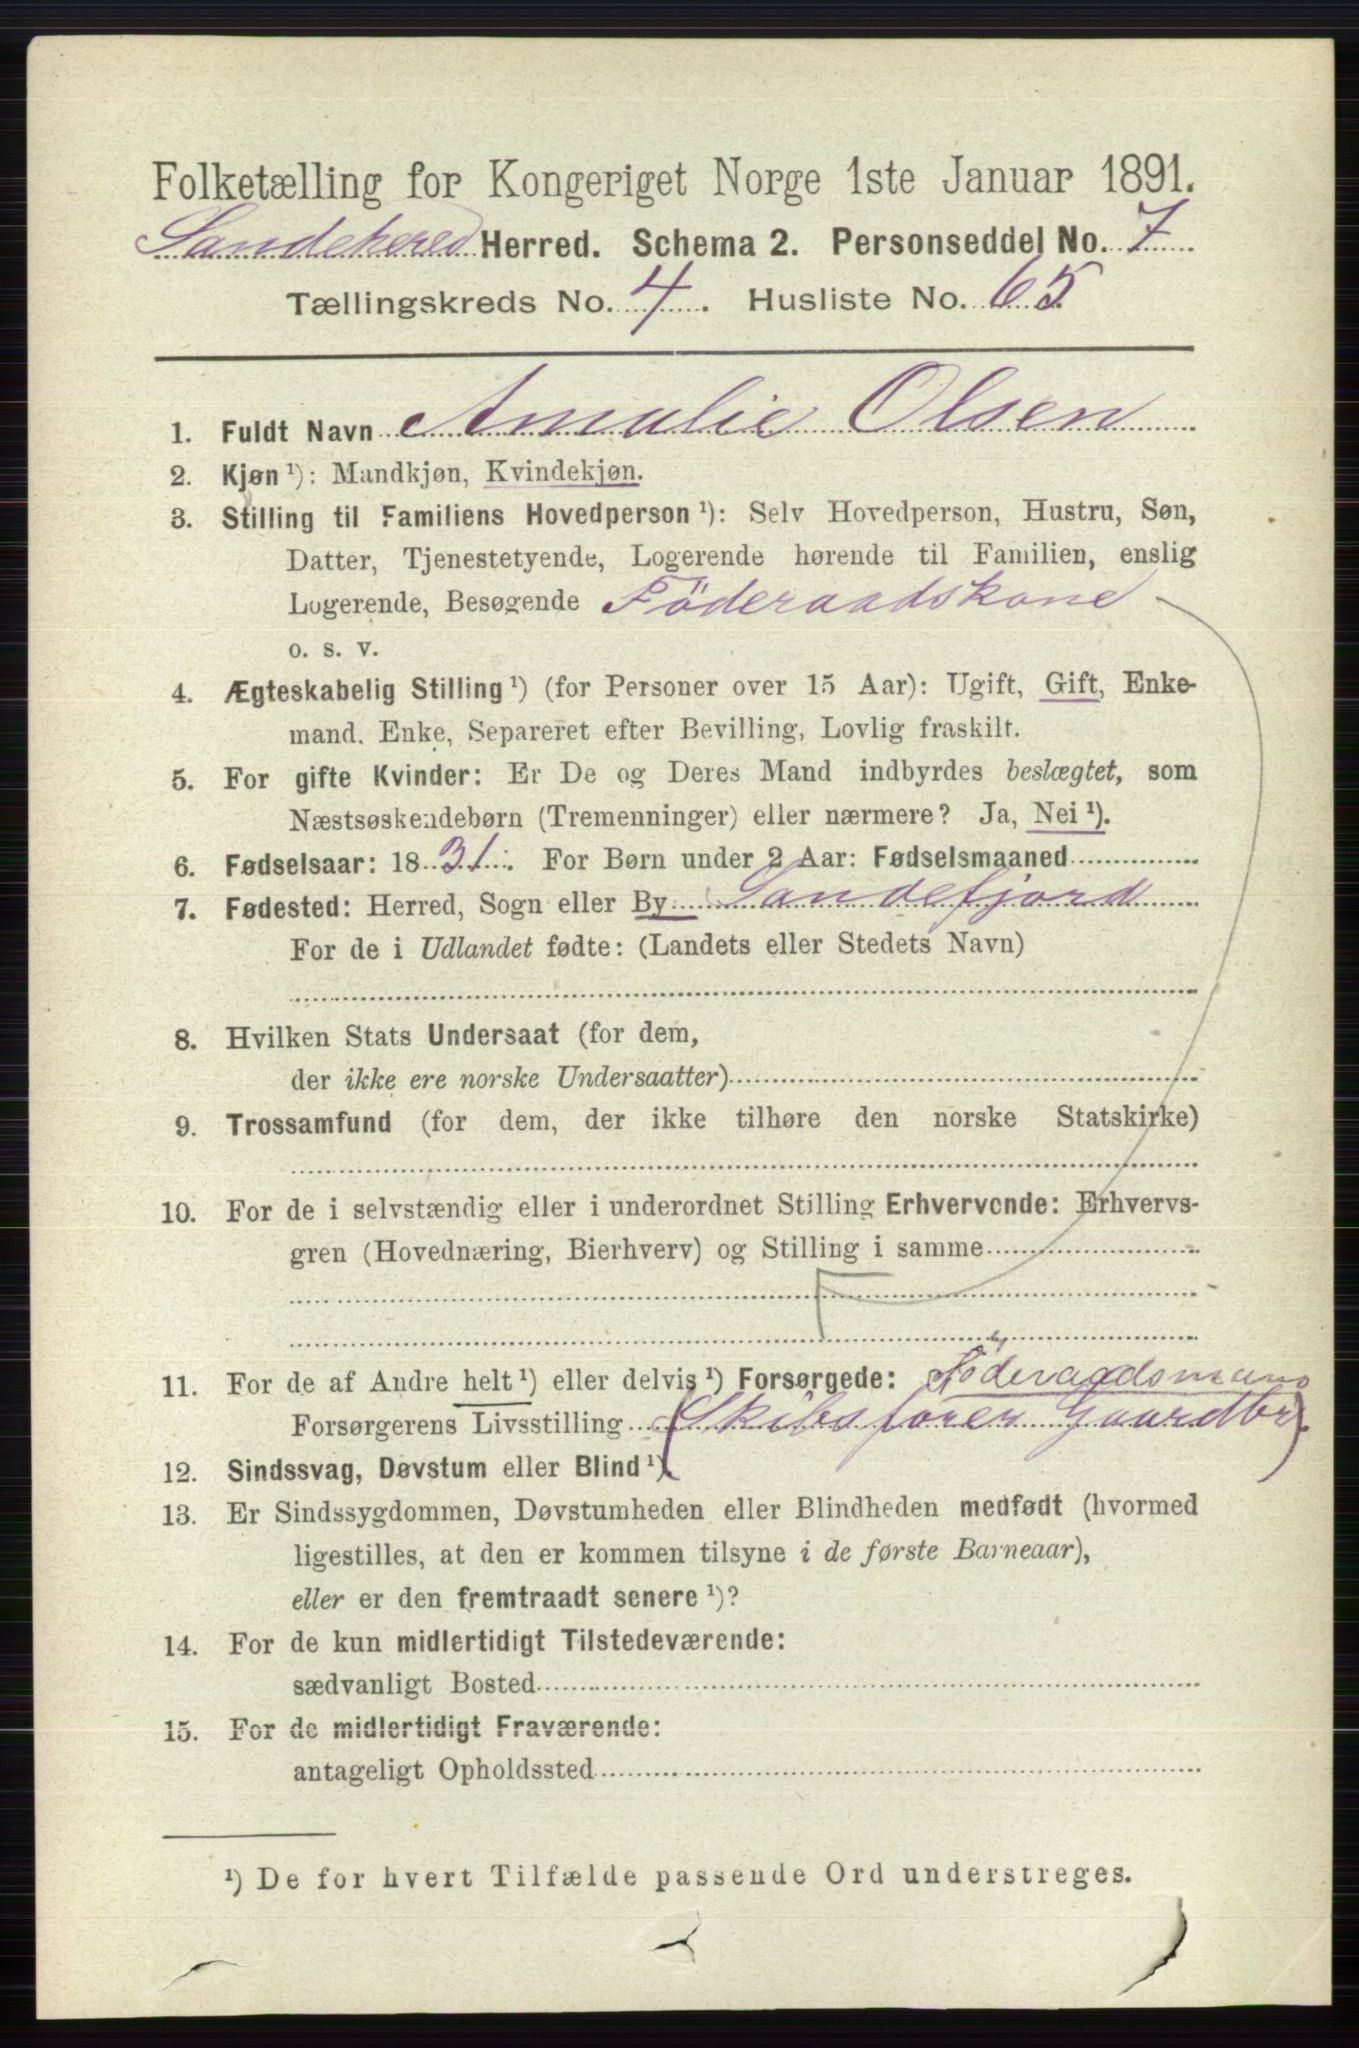 Folketælling for Kongeriget Norge 1ste Januar 1891.
Sandehered Herred. Schema 2. Personseddel No. 7
Tællingskreds No. 4. Husliste No. 65.
1. Fuldt Navn Amalie Olsen
2. Kjøn ¹): Mandkjøn, Kvindekjøn.
3. Stilling til Familiens Hovedperson ¹): Selv Hovedperson, Hustru, Søn,
Datter, Tjenestetyende, Logerende hørende til Familien, enslig
Logerende, Besøgende Föderaadskone
o. s. v.
4. Ægteskabelig Stilling ¹) (for Personer over 15 Aar): Ugift, Gift, Enke-
mand, Enke, Separeret efter Bevilling, Lovlig fraskilt.
5. For gifte Kvinder: Er De og Deres Mand indbyrdes beslægtet, som
Næstsøskendebørn (Tremenninger) eller nærmere? Ja, Nei ¹).
6. Fødselsaar: 1831. For Børn under 2 Aar: Fødselsmaaned
7. Fødested: Herred, Sogn eller By Sandefjord
For de i Udlandet fødte: (Landets eller Stedets Navn)
8. Hvilken Stats Undersaat (for dem,
der ikke ere norske Undersaatter)
9. Trossamfund (for dem, der ikke tilhøre den norske Statskirke)
10. For de i selvstændig eller i underordnet Stilling Erhvervende: Erhvervs-
gren (Hovednæring, Bierhverv) og Stilling i samme
11. For de af Andre helt ¹) eller delvis ¹) Forsørgede: Föderaadsmand
Forsørgerens Livsstilling (Skibsfører Gaardbr).
12. Sindssvag, Døvstum eller Blind ¹).
13. Er Sindssygdommen, Døvstumheden eller Blindheden medfødt (hvormed
ligestilles, at den er kommen tilsyne i de første Barneaar),
eller er den fremtraadt senere ¹)?
14. For de kun midlertidigt Tilstedeværende:
sædvanligt Bosted
15. For de midlertidigt Fraværende:
antageligt Opholdssted
¹) De for hvert Tilfælde passende Ord understreges.